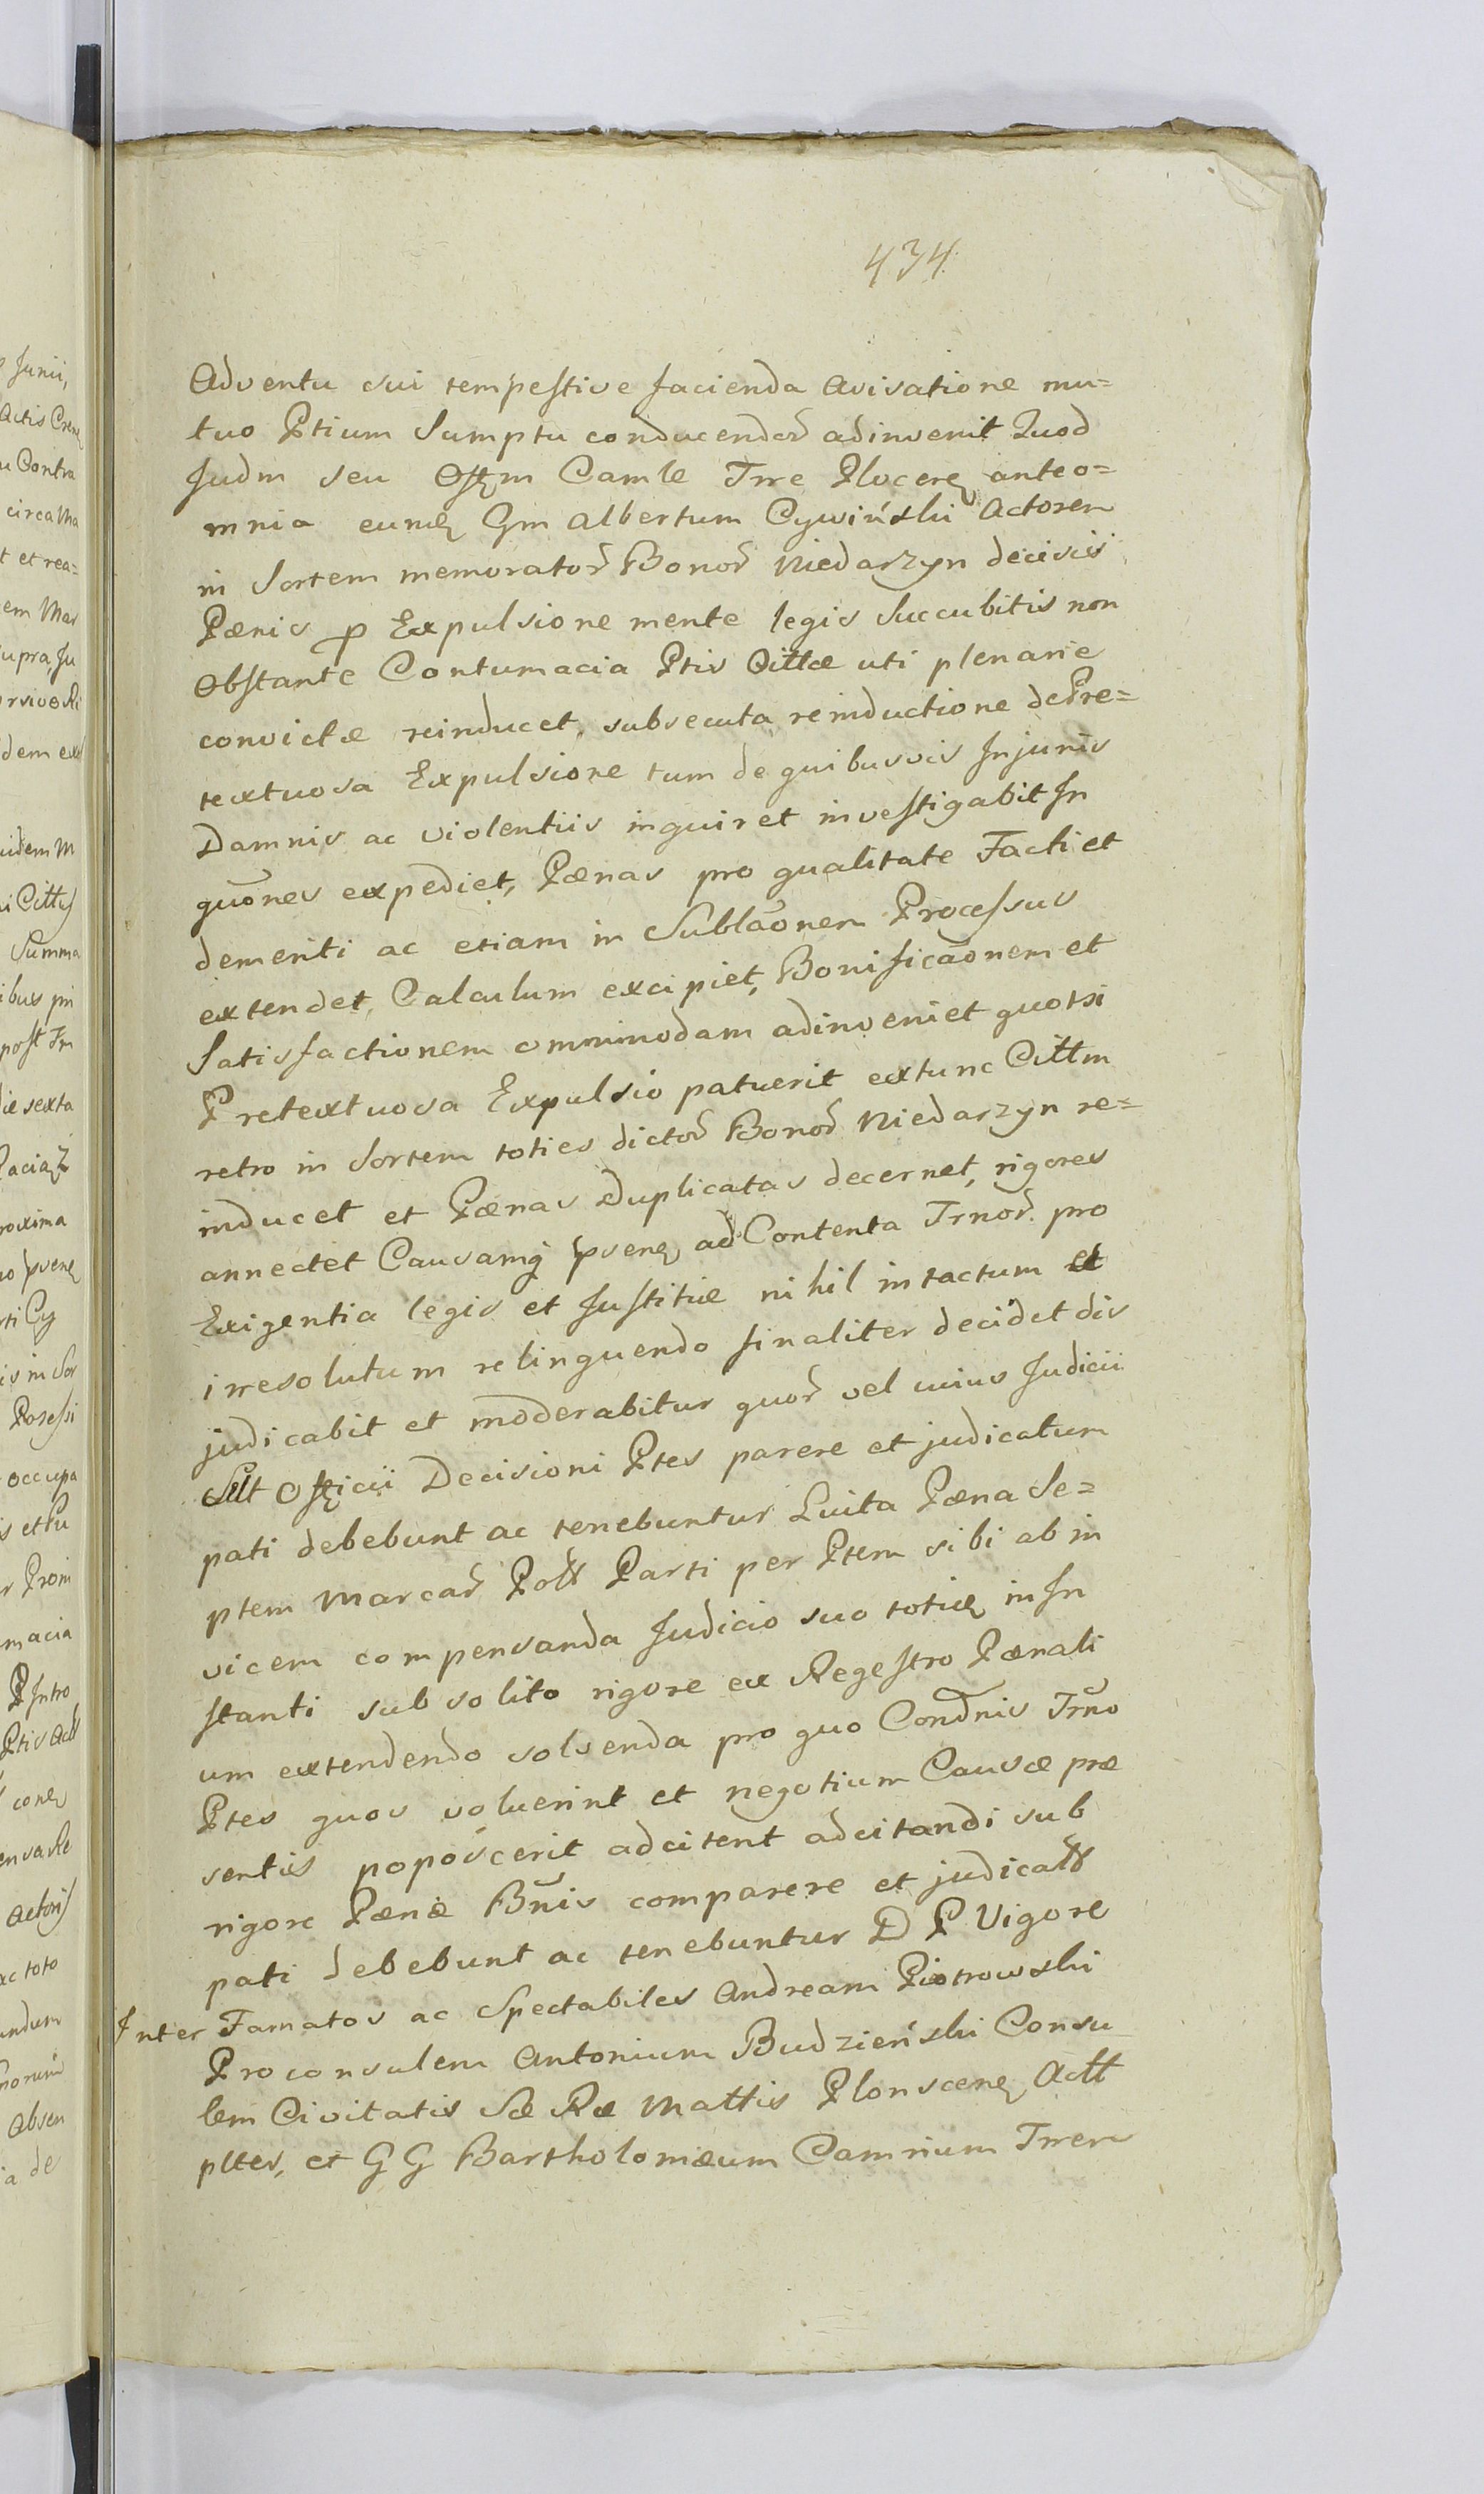 434
Adventu sui tempestive facienda Avisatione mu=
tuo Ptium Sumptu conducendor̃ adinvenit Quod
Judm seu Offm Camle Trre Plocen anteo=
mnia eundem Gm Albertum Cywiński Actorem
in Sortem memorator̃ Bonor̃ Niedarzyn decisis
Pænis p Expulsione mente legis Succubitis non
Obstante Contumacia Ptis Cittæ uti plenarie
convictæ reinducet, subsecuta reinductione de Pre=
textuosa Expulsione tum de quibusvis Injuriis
Damnis ac violentiis inquiret investigabit In
quōnes expediet, Pænas pro qualitate Facti et
demeriti ac etiam in Sublaōnem Processus
extendet, Calculum excipiet, Bonificaōnem et
Satisfactionem omnimodam adinveniet quotsi
Pretextuosa Expulsio patuerit extunc Cittm
retro in Sortem toties dictor̃ Bonor̃ Niedarzyn re=
inducet et Pænas Duplicatas decernet, rigores
annectet Causamq̃ psenem ad Contenta Trnor̃ pro
Exigentia legis et Justitiæ nihil intactum et
irresolutum relinquendo finaliter decidet dis
judicabit et moderabitur quor̃ vel cuius Judicii
sut Officii Decisioni Ptes parere et judicatum
pati debebunt ac tenebuntur Luita Pæna Se=
ptem Marcar̃ Poll Parti per Ptem sibi ab in
vicem compensanda Judicio suo totiem in In
stanti sub solito rigore ex Regestro Pænali
um extendendo solvenda pro quo Condnis Trno
Ptes quos voluerint et negotium Causæ præ
sentis poposcerit adcitent adcitandi sub
rigore Pænæ Bnis comparere et judicatt
pati debebunt ac tenebuntur D P Vigore
Inter Famatos ac Spectabiles Andream Piotrowski
Proconsulem Antonium Budzieński Consu
lem Civitatis Sæ Ræ Mattis Plonscen Actt
pltes, et G G Bartholomæum Camrium Trren